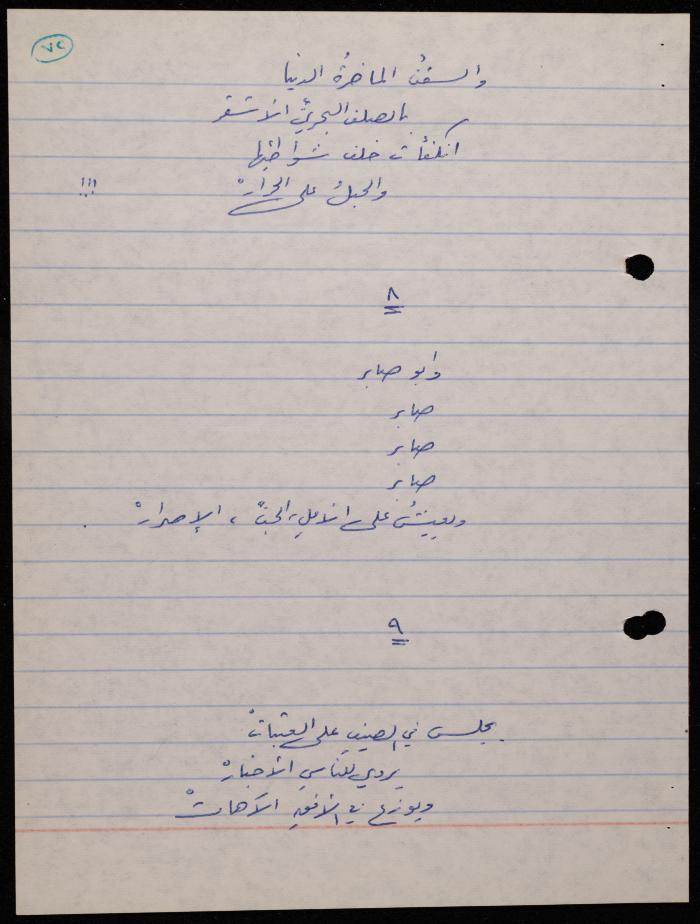 ٧٢
والسفنُ الماخرةُ الدنيا
بالصلف البحريِّ الأشقر
انكفأت خلف شواطئها
والحبلُ على الجرارْ !!!
٨
وابو صابر
صابر
صابر
صابر
ويعيشُ على الأملِ، الحبّ، الإصرارْ .
٩
يجلس في الصيفِ على العتباتْ
يروي للناسِ الأخبارْ
ويوزع في الأفقِ الآهاتْ